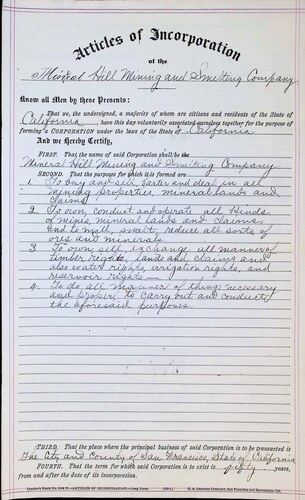 Articles of Incorporation
of the
Mineral Hill Mining and Smelting Company
Know all Men by these Presents:
That we, the undersigned, a majority of whom are citizens and residents of the State of
California, have this day voluntarily associated ourselves together for the purpose of
forming a CORPORATION under the laws of the State of California
And we Hereby Certify,
FIRST. That the name of said Corporation shall be the
Mineral Hill Mining and Smelting Company
SECOND. That the purposes for which it is formed are
1. To buy and sell, barter and deal in all
mining properties, mineral lands and
claims
2. To own conduct and operate all kinds
of mines, mineral lands and claims
and to mill, smelt, reduce all sorts of
ores and minerals
3. To own, sell, exchange all manner of
timber rights, lands and claims and
also water rights, irrigation rights, and
reservoir rights
4. To do all manner of things necessary
and proper to carry out and conduct
the aforesaid purposes.
THIRD. That the place where the principal business of said Corporation is to be transacted is
The City and County of San Francisco, State of California
FOURTH. That the term for which said Corporation is to exist is fifty years,
from and after the date of its incorporation.
ARTICLES OF INCORPORATION